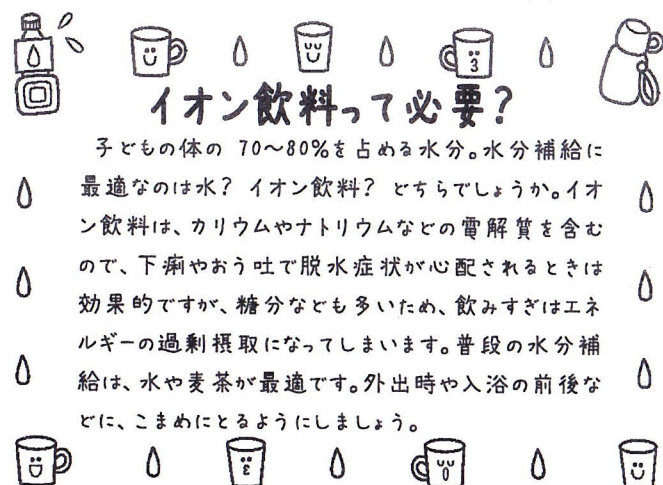 イオン飲料って必要?
子どもの体の 70～80%を占める水分。水分補給に
最適なのは水? イオン飲料? どちらでしょうか。イオ
ン飲料は、カリウムやナトリウムなどの電解質を含む
ので、下痢やおう吐で脱水症状が心配されるときは
効果的ですが、糖分なども多いため、飲みすぎはエネ
ルギーの過剰摂取になってしまいます。普段の水分補
給は、水や麦茶が最適です。外出時や入浴の前後な
どに、こまめにとるようにしましょう。